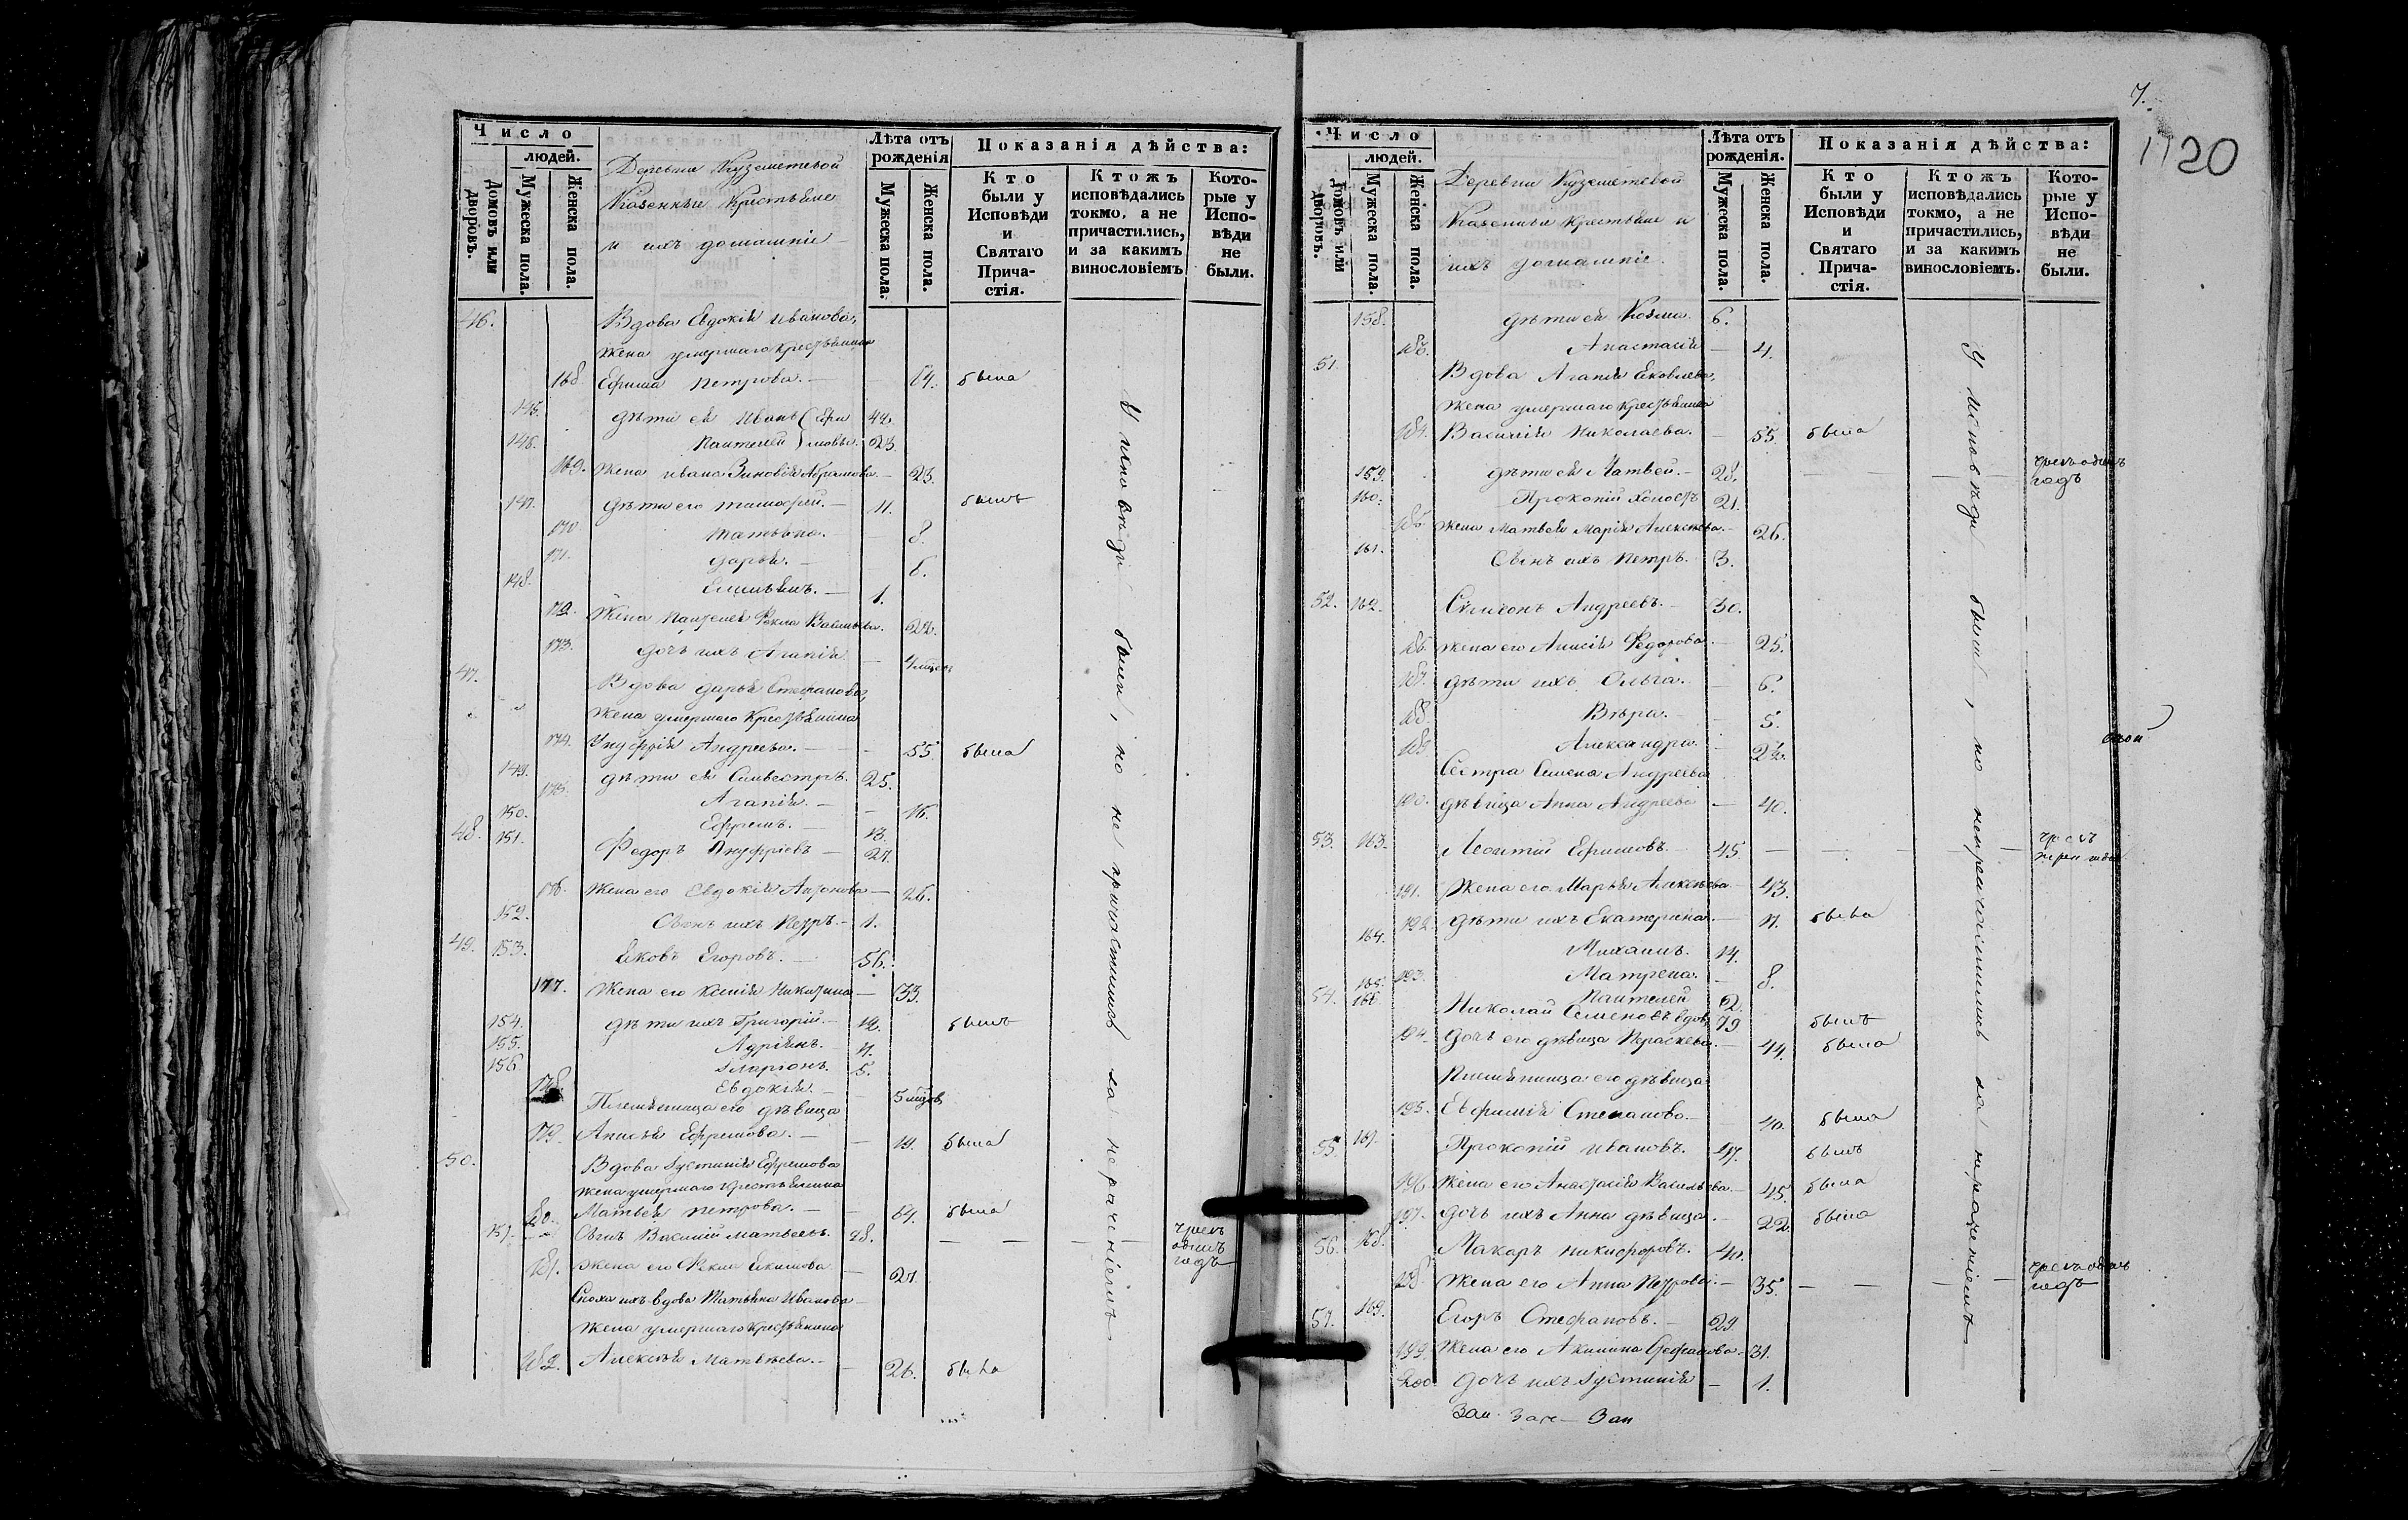 Число
людей.
Домовъ или дворовъ.
Мужеска пола.
Женска пола.
Деревни Куземетевой
Казенные Крестьяне
и ихъ домашніе
Лѣта отъ рожденія
Мужеска пола.
Женска пола.
Показанія дѣйства:
Кто были у Исповѣди и Святаго Прича-стія.
Ктожъ исповѣдались токмо, а не причастились, и за какимъ винословіемъ
Кото-рые у Испо-вѣди не были.
46. Вдова Евдокія Иванова,
жена умершаго крестьянина
168 Ефима Петрова. — 64. была
145. дѣти ея Иванъ 42.
146. Пантелей 23.
169. Жена Ивана Зиновія Абрамова — 23.
147. дѣти его Тимофей. — 11. былъ
170 Татьяна. — 8.
171. Дарья. — 6.
148. Емельянъ. — 1.
172. Жена Пантелея Фекла Васильева. 22.
173. дочь ихъ Агапія —
47. Вдова Дарья Стефанова,
жена умершаго Крестьянина
174. Андреева. — 55. была
149. дѣти ея Сильвестръ. 25.
175. Агапія. — 16.
150. Ефремъ. — 13.
48. 151. Федоръ Ануфріевъ — 27.
176. Жена его Евдокія Антонова — 26.
152. Сынъ ихъ Петръ. — 1.
49. 153. Яковъ Егоровъ. — 56.
177. Жена его Ксенія Никитина — 33.
154. дѣти ихъ Григорій. — 12. былъ
155. Адріянъ. —
156. Иларіонъ. 5.
178. Евдокія. — 5 мцовъ
Племянница его дѣвица
179. Анисья Ефремова. — 19. была
50. Вдова Іустинія Ефремова
жена умершаго крестьянина
180. Матвея Петрова. — 64. была
157. Сынъ Василій Матвеевъ. 28. — — — — чрезъ
одинъ
годъ
181. Жена его Фекла Екимова — 27.
Сноха ихъ вдова Татьяна Иванова —
жена умершаго Крестьянина
182. Алексѣя Матвѣева. — 26. была
У исповѣди были, но не причастились за нераченіемъ
7.
20
Число
людей.
Домовъ или дворовъ.
Мужеска пола.
Женска пола.
Деревни Куземетевой
Казенные Крестьяне и
ихъ домашніе.
Лѣта отъ рожденія.
Мужеска пола.
Женска пола.
Показанія дѣйства:
Кто были у Исповѣди и Святаго Прича-стія.
Ктожъ исповѣдались токмо, а не причастились, и за какимъ винословіемъ.
Кото-рые у Испо-вѣди не были.
158. дѣти ея Козма. 6.
183. Анастасія — 4.
51. Вдова Агапія Яковлева,
Жена умершаго Крестьянина
184. Василія Николаева. — 55. была
159. дѣти ея Матвей. — 28. — — чрезъ одинъ
годъ
160. Прокопій холостъ 21.
185. Жена Матвея Марія Алексѣева. — 26.
161. Сынъ ихъ Петръ. 3.
52. 162. Андреевъ. — 30.
186. Жена его Анисія Федорова — 25.
187. дѣти ихъ Ольга. — 6.
188. Вѣра. — 5.
189. Александра. —
Сестра Семена Андреева
190. дѣвица Анна Андреева — 40.
53. 163. Леонтій Ефимовъ. — 45. — — — — чрезъ
191. Жена его Марья Алексѣева — 43.
192. дѣти ихъ Екатерина. — была
164. Михаилъ. 14.
193. Матрена. — 8.
165. Пантелей 2.
54. 166 Николай Семеновъ вдовъ 79 былъ
194. дочь его дѣвица Параскева. — 44. была
Племянница его дѣвица
195. Евфимія Степанова. — 40. была
55. 167. Прокопій Ивановъ. 47. былъ
196 Жена его Анастасія Васильева. — 45. была
197. дочь ихъ Анна дѣвица. — 22. была
56. 168. Макаръ Никифоровъ. 40.
198. Жена его Анна Петрова. — 35. — — — — чрезъ одинъ
годъ
57. 169. Егоръ Стефановъ. — 29.
199. Жена его Акилина Стефанова — 31.
200. дочь ихъ Іустинія — 1.
У исповѣди были, но непричастились за нераченіемъ